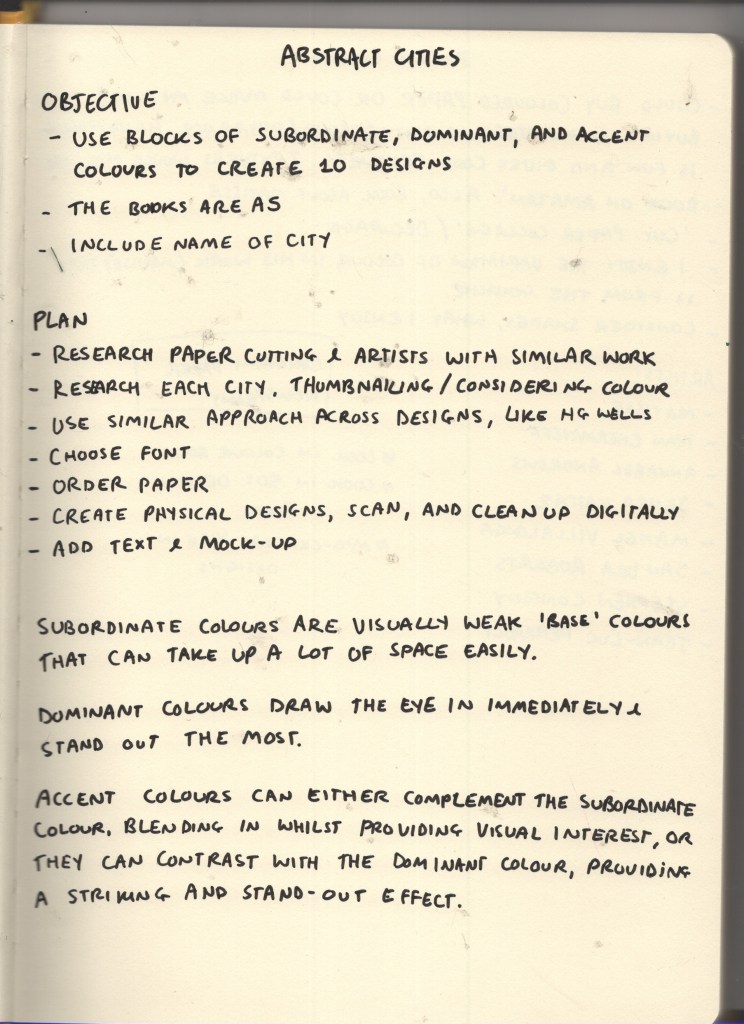 ABSTRACT CITIES
OBJECTIVE
- USE BLOCKS OF SUBORDINATE, DOMINANT, AND ACCENT
COLOURS TO CREATE 10 DESIGNS
- THE BOOKS ARE A5
- INCLUDE NAME OF CITY
PLAN
- RESEARCH PAPER CUTTING & ARTISTS WITH SIMILAR WORK
- RESEARCH EACH CITY, THUMBNAILING / CONSIDERING COLOUR
- USE SIMILAR APPROACH ACROSS DESIGNS, LIKE HG WELLS
- CHOOSE FONT
- ORDER PAPER
- CREATE PHYSICAL DESIGNS, SCAN, AND CLEAN UP DIGITALLY
- ADD TEXT & MOCK-UP
SUBORDINATE COLOURS ARE VISUALLY WEAK 'BASE' COLOURS
THAT CAN TAKE UP A LOT OF SPACE EASILY.
DOMINANT COLOURS DRAW THE EYE IN IMMEDIATELY &
STAND OUT THE MOST.
ACCENT COLOURS CAN EITHER COMPLEMENT THE SUBORDINATE
COLOUR, BLENDING IN WHILST PROVIDING VISUAL INTEREST, OR
THEY CAN CONTRAST WITH THE DOMINANT COLOUR, PROVIDING
A STRIKING AND STAND-OUT EFFECT.